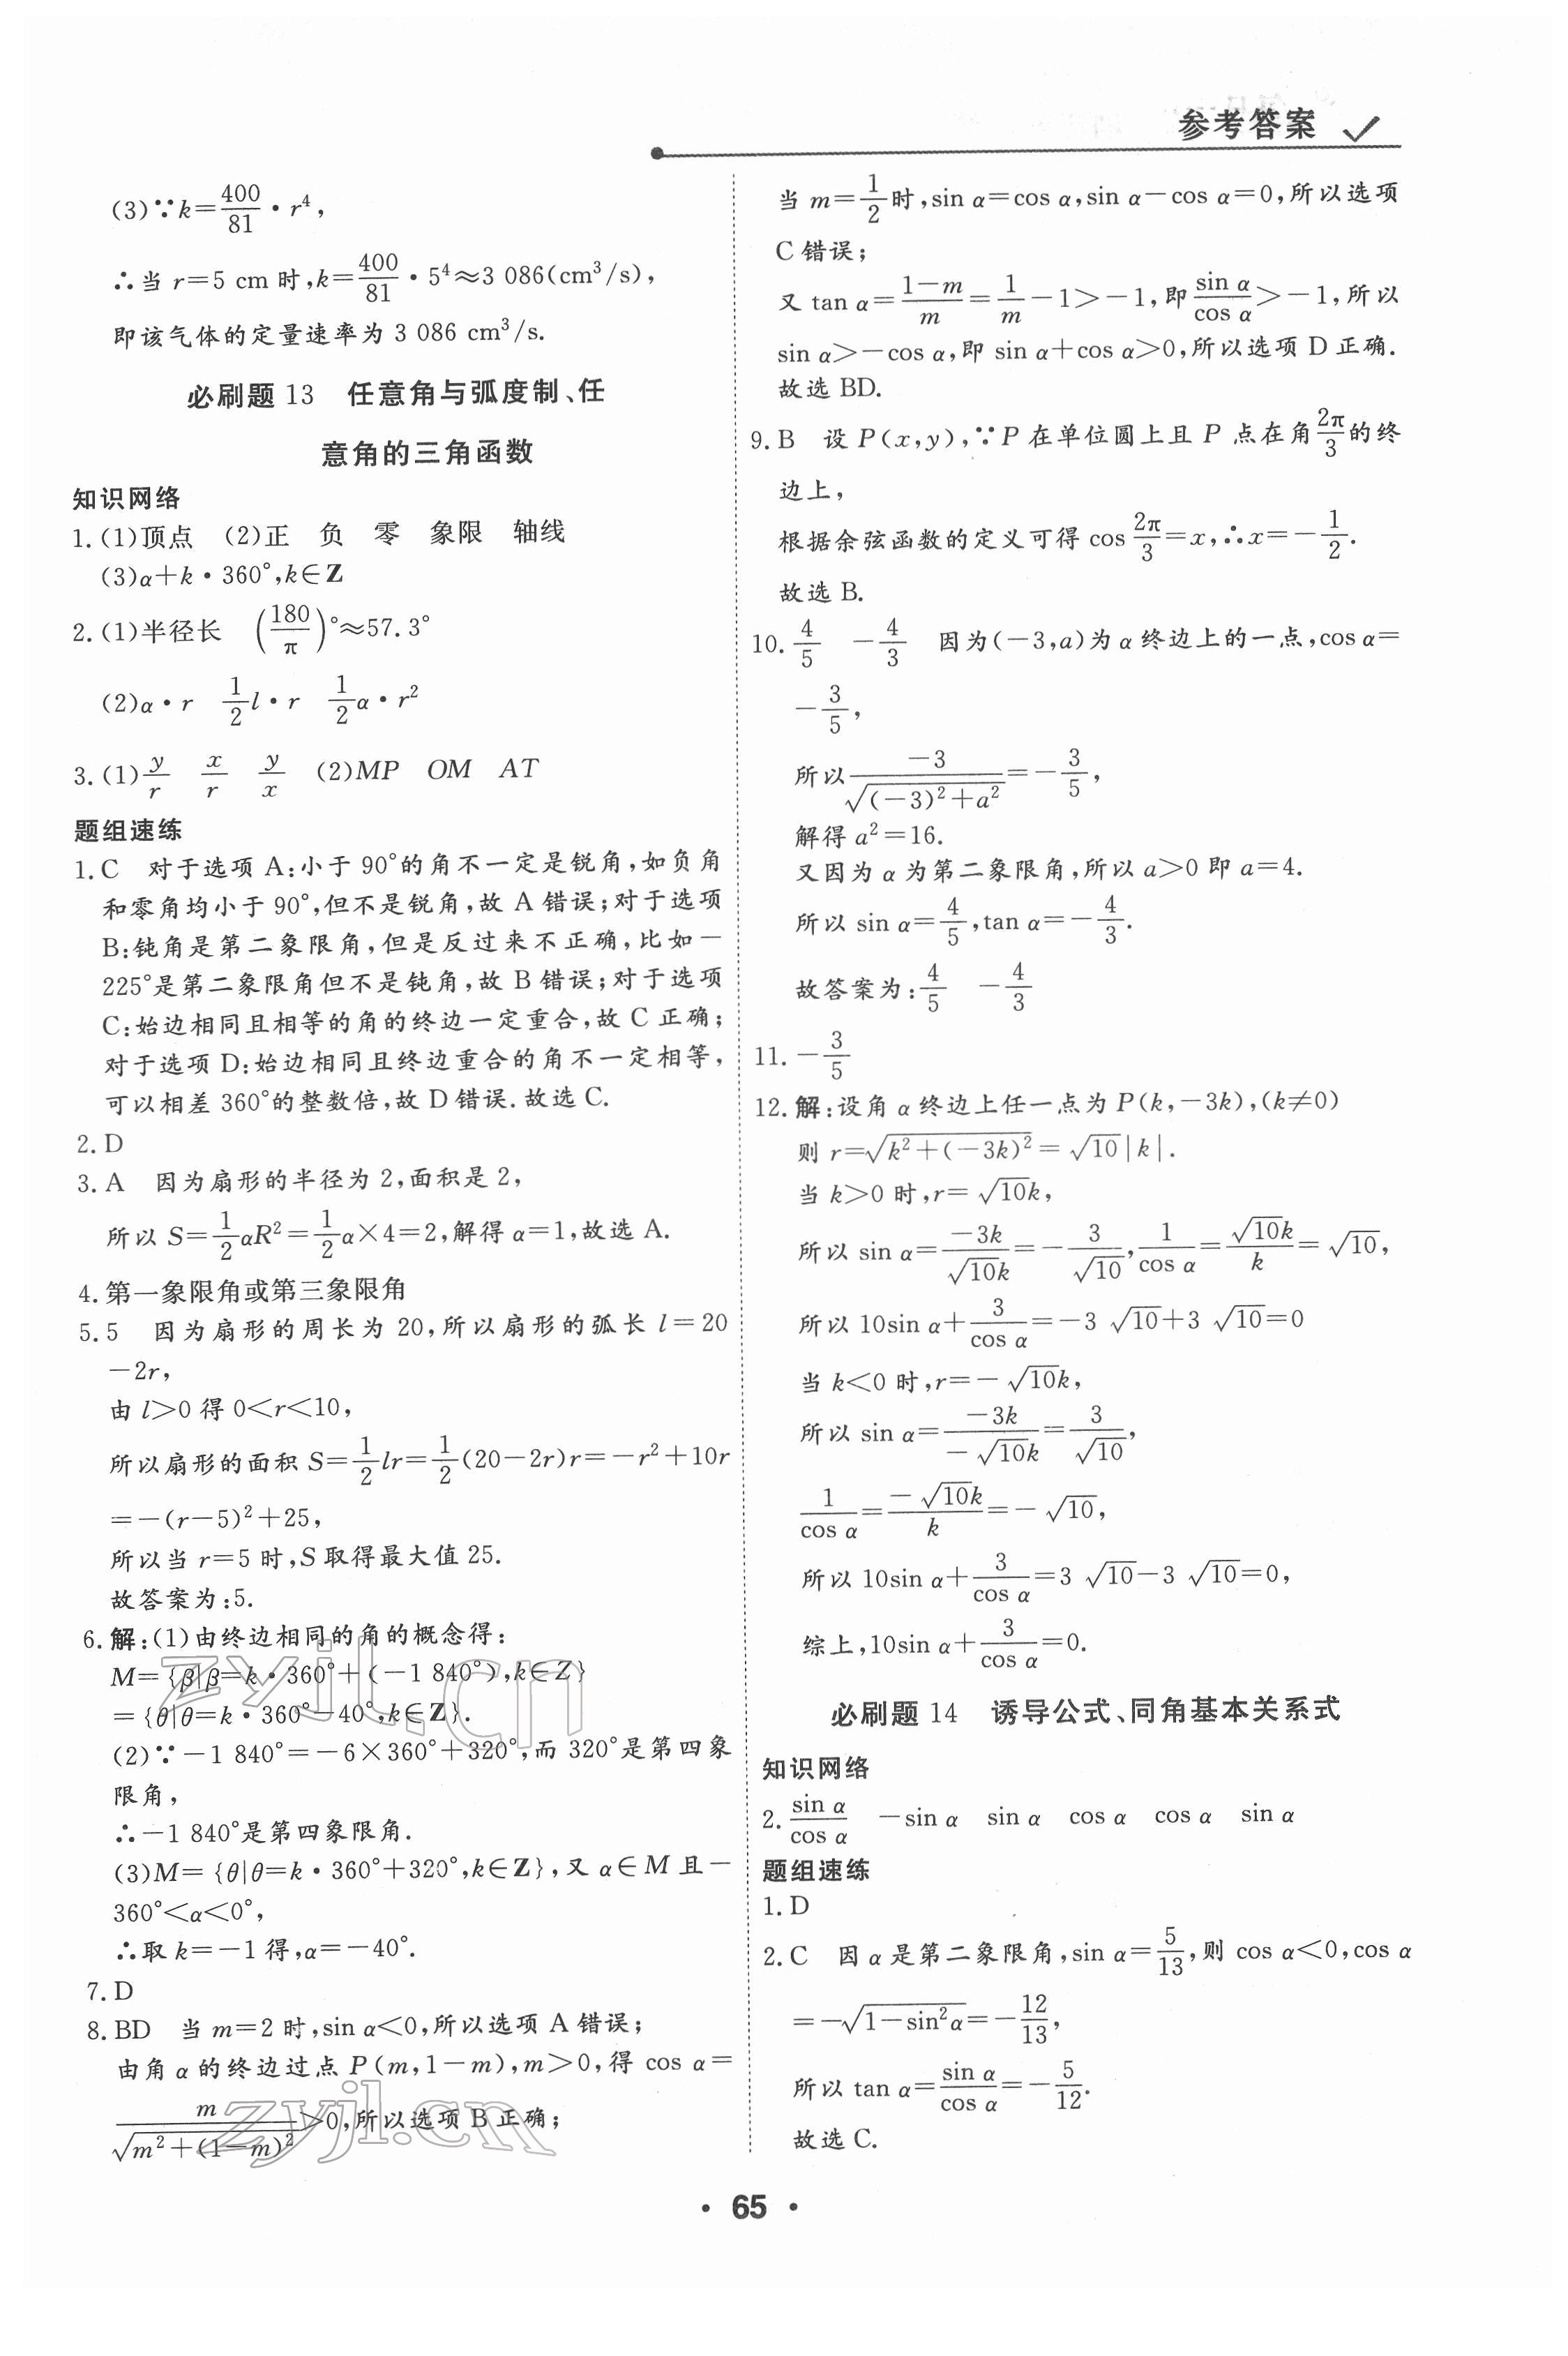 参考答案
(3)∵k=400/81·r⁴,
∴当 r=5 cm 时,k=400/81·5⁴≈3 086(cm³/s),
即该气体的定量速率为 3 086 cm³/s.
必刷题 13 任意角与弧度制、任
意角的三角函数
知识网络
1.(1)顶点 (2)正 负 零 象限 轴线
(3)α+k·360°,k∈Z
2.(1)半径长 (180/π)°≈57.3°
(2)α·r 1/2 l·r 1/2 α·r²
3.(1)y/r x/r y/x (2)MP OM AT
题组速练
1.C 对于选项 A:小于 90°的角不一定是锐角,如负角
和零角均小于 90°,但不是锐角,故 A 错误;对于选项
B:钝角是第二象限角,但是反过来不正确,比如-
225°是第二象限角但不是钝角,故 B 错误;对于选项
C:始边相同且相等的角的终边一定重合,故 C 正确;
对于选项 D:始边相同且终边重合的角不一定相等,
可以相差 360°的整数倍,故 D 错误.故选 C.
2.D
3.A 因为扇形的半径为 2,面积是 2,
所以 S=1/2 αR²=1/2 α×4=2,解得 α=1,故选 A.
4.第一象限角或第三象限角
5.5 因为扇形的周长为 20,所以扇形的弧长 l=20
-2r,
由 l>0 得 0<r<10,
所以扇形的面积 S=1/2 lr=1/2(20-2r)r=-r²+10r
=-(r-5)²+25,
所以当 r=5 时,S 取得最大值 25.
故答案为:5.
6.解:(1)由终边相同的角的概念得:
M={β|β=k·360°+(-1 840°),k∈Z}
={θ|θ=k·360°-40°,k∈Z}.
(2)∵-1 840°=-6×360°+320°,而 320°是第四象
限角,
∴-1 840°是第四象限角.
(3)M={θ|θ=k·360°+320°,k∈Z},又 α∈M 且-
360°<α<0°,
∴取 k=-1 得,α=-40°.
7.D
8.BD 当 m=2 时,sin α<0,所以选项 A 错误;
由角 α 的终边过点 P(m,1-m),m>0,得 cos α=
m/√(m²+(1-m)²)>0,所以选项 B 正确;
当 m=1/2 时,sin α=cos α,sin α-cos α=0,所以选项
C 错误;
又 tan α=(1-m)/m=1/m-1>-1,即 sin α/cos α>-1,所以
sin α>-cos α,即 sin α+cos α>0,所以选项 D 正确.
故选 BD.
9.B 设 P(x,y),∵P 在单位圆上且 P 点在角 2π/3 的终
边上,
根据余弦函数的定义可得 cos 2π/3=x,∴x=-1/2.
故选 B.
10.4/5 -4/3 因为(-3,a)为 α 终边上的一点,cos α=
-3/5,
所以 -3/√((-3)²+a²)=-3/5,
解得 a²=16.
又因为 α 为第二象限角,所以 a>0 即 a=4.
所以 sin α=4/5,tan α=-4/3.
故答案为:4/5 -4/3
11.-3/5
12.解:设角 α 终边上任一点为 P(k,-3k),(k≠0)
则 r=√(k²+(-3k)²)=√10|k|.
当 k>0 时,r=√10k,
所以 sin α=-3k/√10k=-3/√10,1/cos α=√10k/k=√10,
所以 10sin α+3/cos α=-3√10+3√10=0
当 k<0 时,r=-√10k,
所以 sin α=-3k/-√10k=3/√10,
1/cos α=-√10k/k=-√10,
所以 10sin α+3/cos α=3√10-3√10=0,
综上,10sin α+3/cos α=0.
必刷题 14 诱导公式、同角基本关系式
知识网络
2.sin α/cos α -sin α sin α cos α cos α sin α
题组速练
1.D
2.C 因 α 是第二象限角,sin α=5/13,则 cos α<0,cos α
=-√(1-sin²α)=-12/13,
所以 tan α=sin α/cos α=-5/12.
故选 C.
zyjl.cn
zyjl.cn
· 65 ·